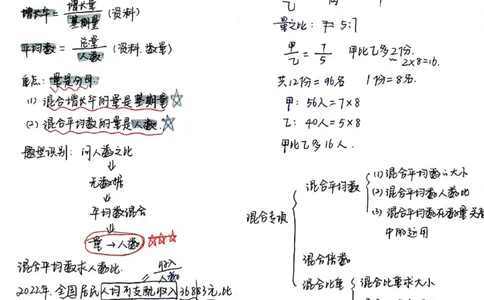 增长率 = 增长量/基期量 (资料)
平均数 = 总量/人数 (资料.数量)
重点: 量是分母
(1) 混合增长率的量是基期量☆
(2) 混合平均数的量是人数.☆
题型识别: 问人数之比
⇓
无数据
⇓
平均数混合
⇓
量→人数 ☆☆☆
混合平均数求人数比.
收入/人数
2022年.全国居民人均可支配收入36883元,比
乙
量之比: 5:7
甲/乙 = 7/5 甲比乙多2份.
2×8=16.
共12份=96名 1份=8名.
甲: 56人=7×8
乙: 40人=5×8
甲比乙多16人.
混合专项
混合平均数
(1) 混合平均数的大小
(2) 混合平均数人数比
(3) 混合平均数在数量关系
中的运用
混合倍数
混合比重
混合比重求大小